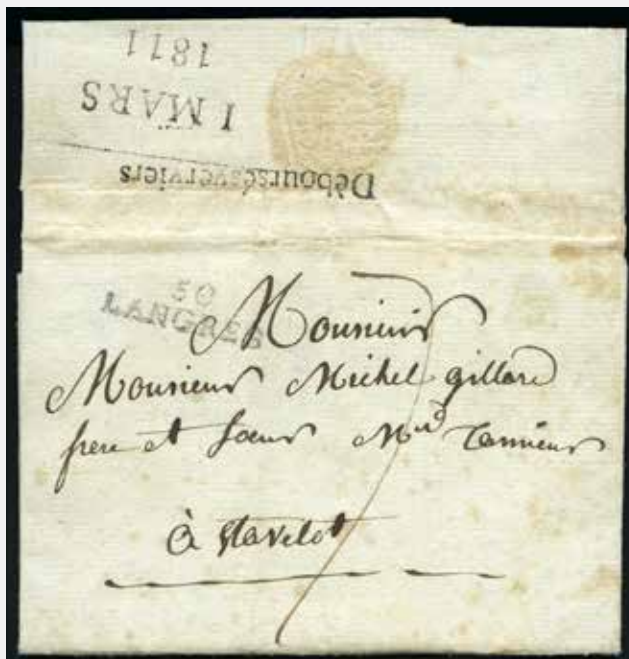 1811
1 MARS
Déboursésverviers
50
LANGRES
Monsieur
Monsieur Michel gillard
frere et Soeur M.d Tannieur
à Stavelot